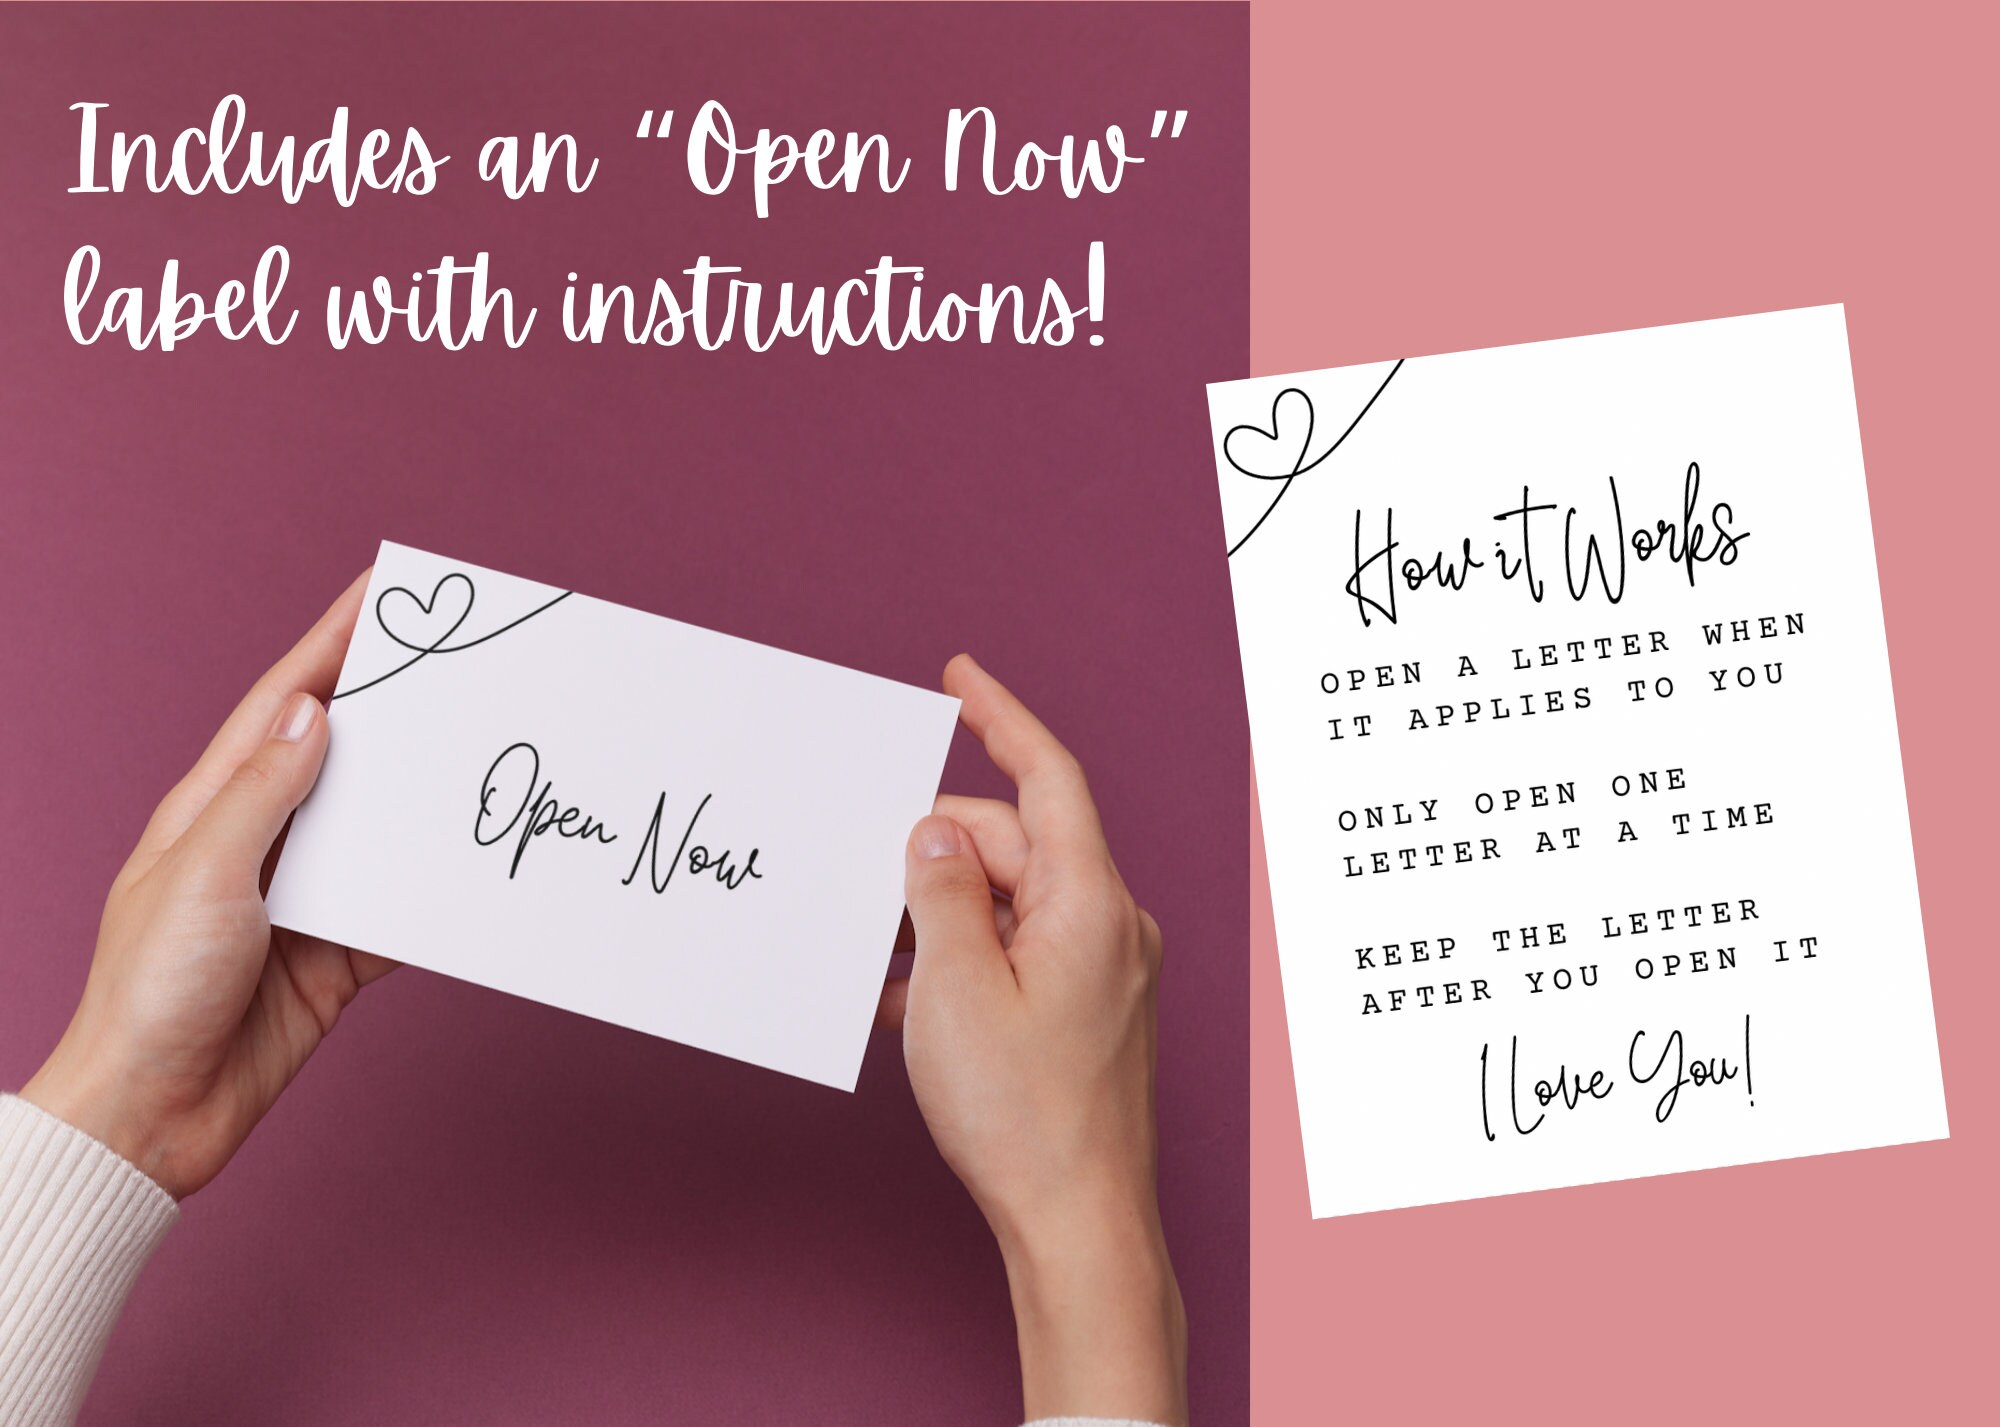 Includes an “Open Now”
label with instructions!
Open Now
How it Works
OPEN A LETTER WHEN
IT APPLIES TO YOU
ONLY OPEN ONE
LETTER AT A TIME
KEEP THE LETTER
AFTER YOU OPEN IT
I Love You!